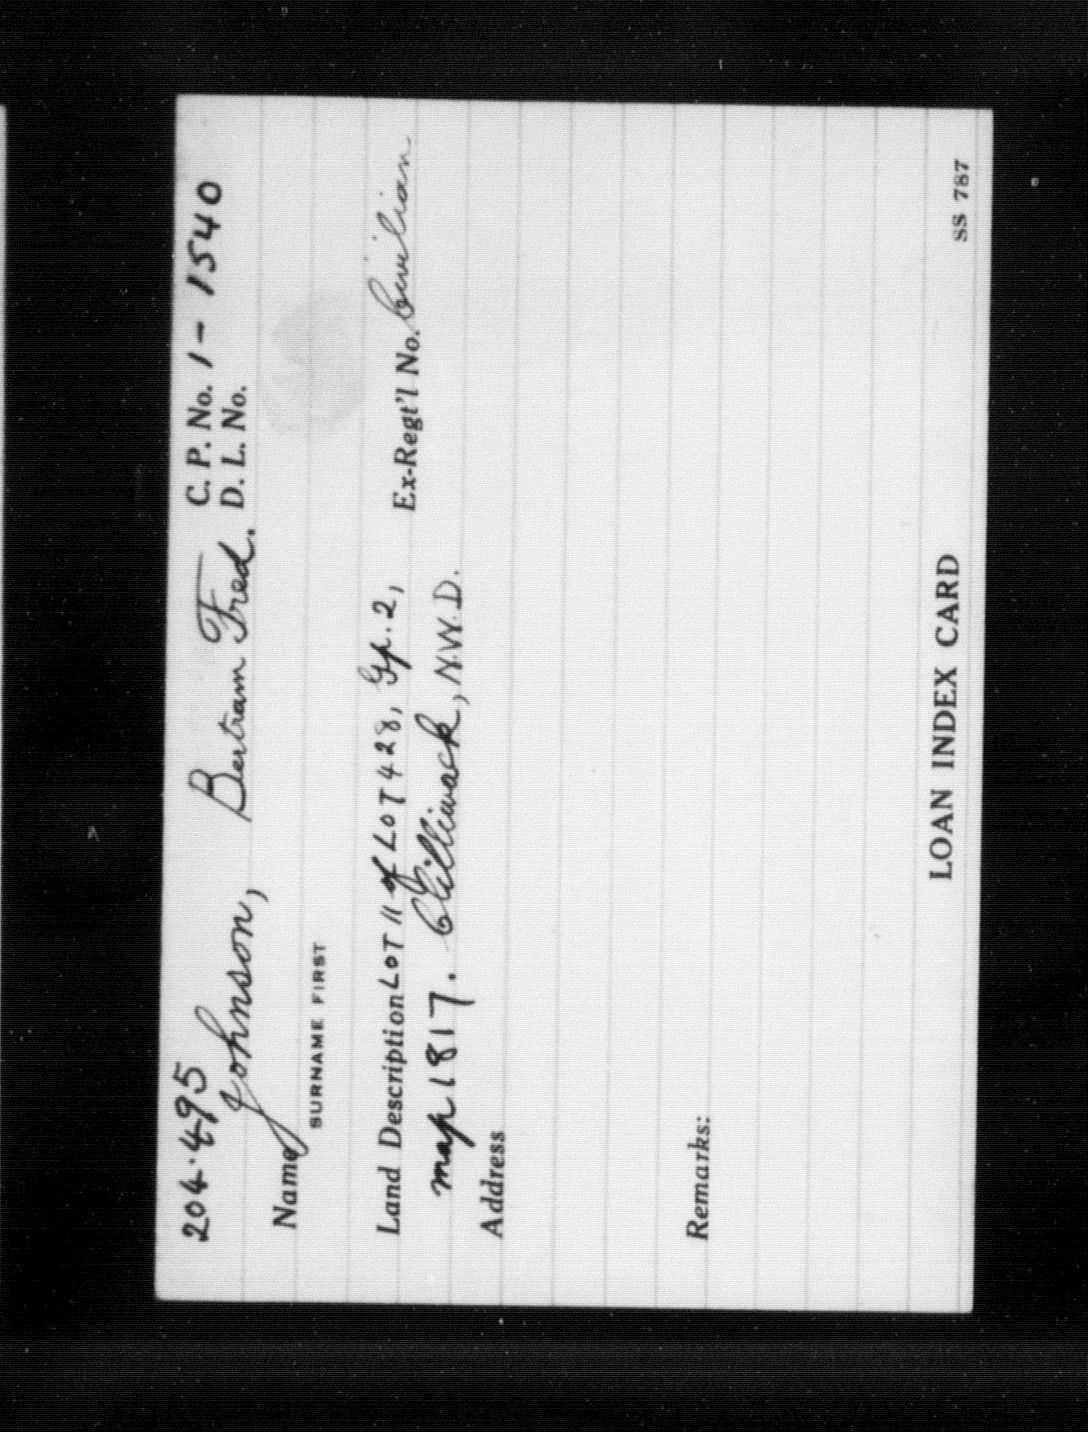 204.495
C. P. No. 1-1540
Name Johnson, Bertram Fred. D. L. No.
SURNAME FIRST
Land Description LOT 11 of LOT 428, Gp. 2, Ex-Regt'l No. Civilian
map 1817. Chilliwack, N.W.D.
Address
Remarks:
LOAN INDEX CARD
SS 787